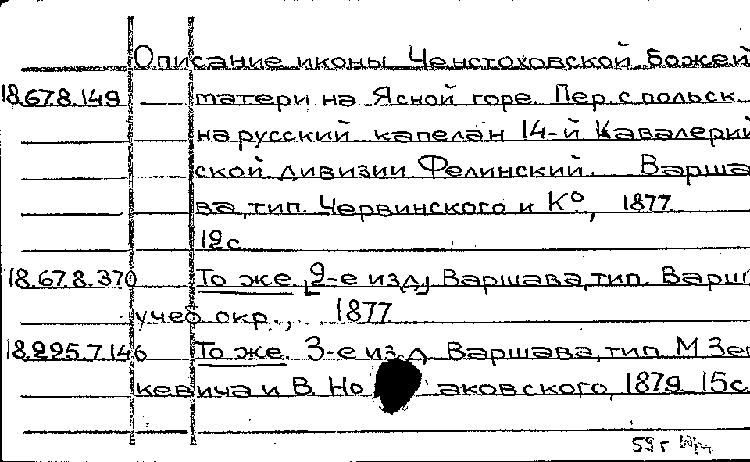 Описание иконы Ченстоховской божей
18.67.8.149 матери на Ясной горе. Пер. с польск.
на русский капелан 14-й Кавалерий
ской дивизии Фелинский. Варша
ва, тип. Червинского и К°, 1877
12с
18.67.8.370 То же. 2-е изд. Варшава, тип. Варш
учеб окр., 1877
18.225.7.146 То же. 3-е изд. Варшава, тип. М Зен
кевича и В. Но аковского, 1879 15с
59г